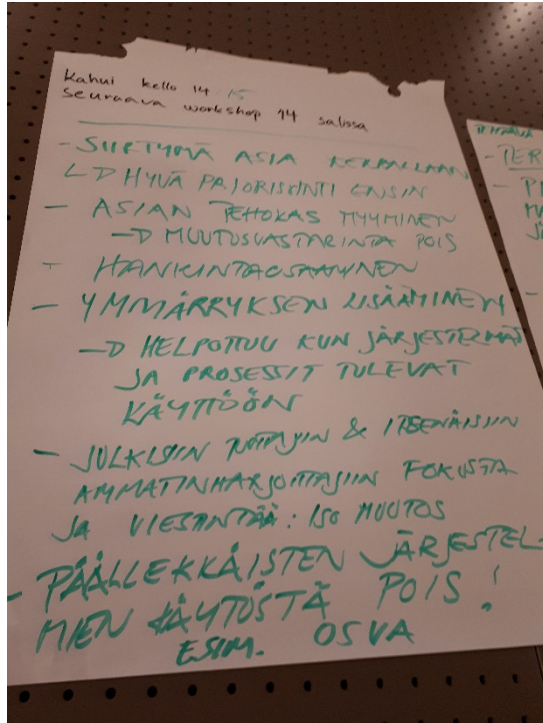 Kahvi kello 14 15
seuraava workshop 14 salissa
- SIIRTYMÄ ASIA KERRALLAAN
L-D HYVÄ PRIORISOINTI ENSIN
- ASIAN TEHOKAS MYYMINEN
-D MUUTOSVASTARINTA POIS
- HANKINTAOSAAMINEN
- YMMÄRRYKSEN LISÄÄMINEN
-D HELPOTTUU KUN JÄRJESTELMÄT
JA PROSESSIT TULEVAT
KÄYTTÖÖN
- JULKISIIN TUOTTAJIIN & ITSENÄISIIN
AMMATINHARJOITTAJIIN FOKUSTA
JA VIESTINTÄÄ: ISO MUUTOS
- PÄÄLLEKKÄISTEN JÄRJESTEL-
MIEN KÄYTÖSTÄ POIS!
ESIM. OSVA